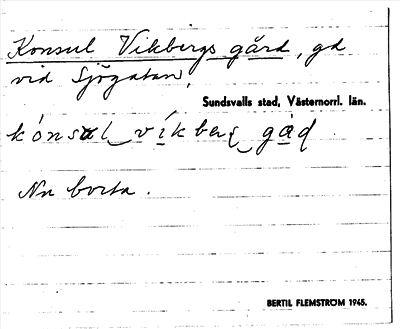 Konsul Vikbergs gård, gd
vid Sjögatan,
Sundsvalls stad, Västernorrl. län.
kónsul‿víkberg‿gåd.
Nu borta.
BERTIL FLEMSTRÖM 1945.